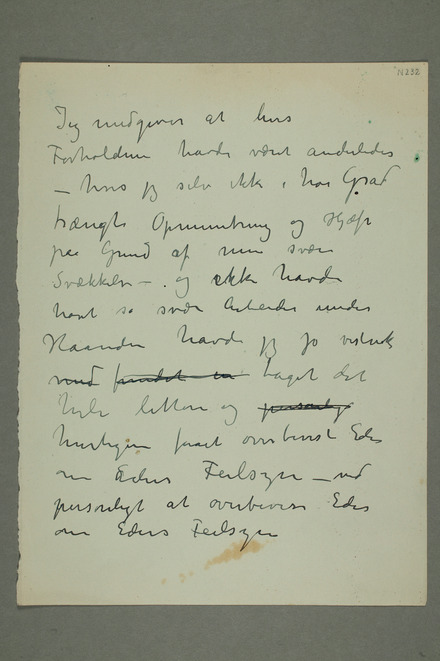 N 232
Jeg medgiver at hvis
Forholdene havde været anderledes
— hvis jeg selv ikke i høi Grad
trængte Opmuntring og Hjælp
paa Grund af min svære
Svækkelse — og ikke havde
havt så svære Arbeider under
Haanden havde jeg jo vistnok
taget det
hele lettere og
hurtigere faaet overbevist Eder
om Eders Feilsyn — ved
personligt at overbevise Eder
om Eders Feilsyn